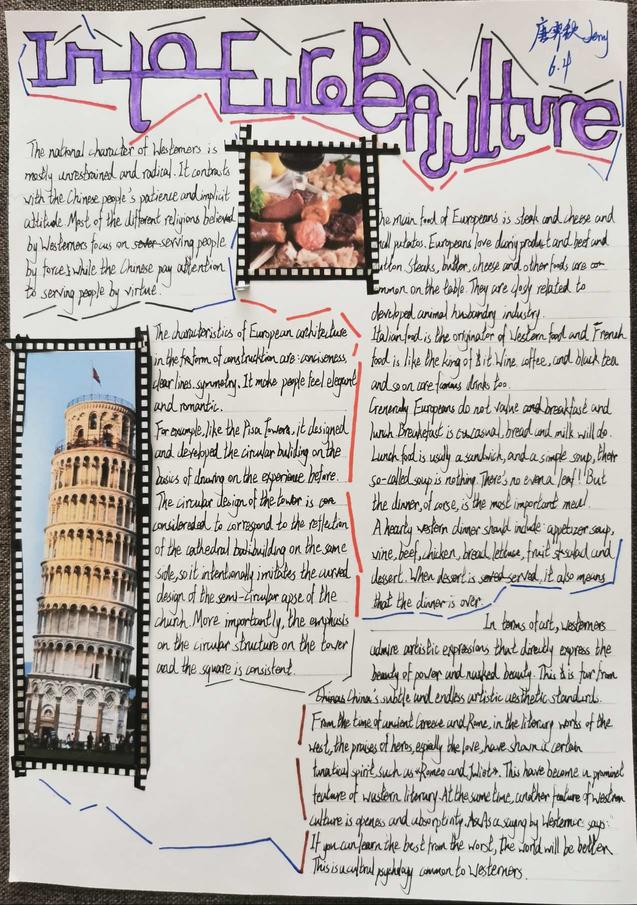 Into European Culture
唐宇秋 Jerry
6.4
The national character of Westerners is
mostly unrestrained and radical. It contrasts
with the Chinese people's patience and implicit
attitude. Most of the different religions believed
by Westerners focus on serving people
by force, while the Chinese pay attention
to serving people by virtue.
The characteristics of European architecture
in the form of construcktion are: conciseness,
clear lines, symmetry. It make people feel elegant
and romantic.
For example, like the Pisa towers, it designed
and developed the circular building on the
basics of drawing on the experience before.
The circular design of the tower is
considereded to correspond to the reflection
of the cathedral building on the same
side, so it intentionally imitates the curved
design of the semi-circular apse of the
church. More importantly, the emphasis
on the circular structure on the tower
and the square is consistent.
The main food of Europeans is steak and cheese and
putatos. Europeans love dairy product and beef and
utton. Steaks, butter, cheese and other foods are co-
mmon on the table. They are closly related to
developed animal husbandry industry.
Italian food is the originator of Western food and French
food is like the king of it. Wine, coffee, and black tea
and so on are famous drinks too.
Generally Europeans do not value breakfast and
lunch. Breakefast is casual, bread and milk will do.
Lunch food is usully a sandwich, and a simple soup, their
so-called soup is nothing. There's no even a leaf! But
the dinner, of corse, is the most important meal.
A hearty western dinner should include: appetizer soup,
wine, beef, chicken, bread, lettuce, fruit salad and
dessert. When desert is served, it also means
that the dinner is over.
In terms of art, westerners
admire artistic expressions that directly express the
beauty of power and nacked beauty. This is far from
China's subtle and endless artistic aesthetic standards.
From the time of ancient Greece and Rome, in the literary works of the
west, the praises of hero, espeilly the love, have shown a certain
fanatical spirit, such as «Romeo and Juliot». This have become a prominet
feature of western literary. At the same time, another feature of western
culture is openess and absorptivity. As a saying by Westerner says:
If you can learn the best from the worst, the world will be better.
This is a cultrul psychology common to Westerners.